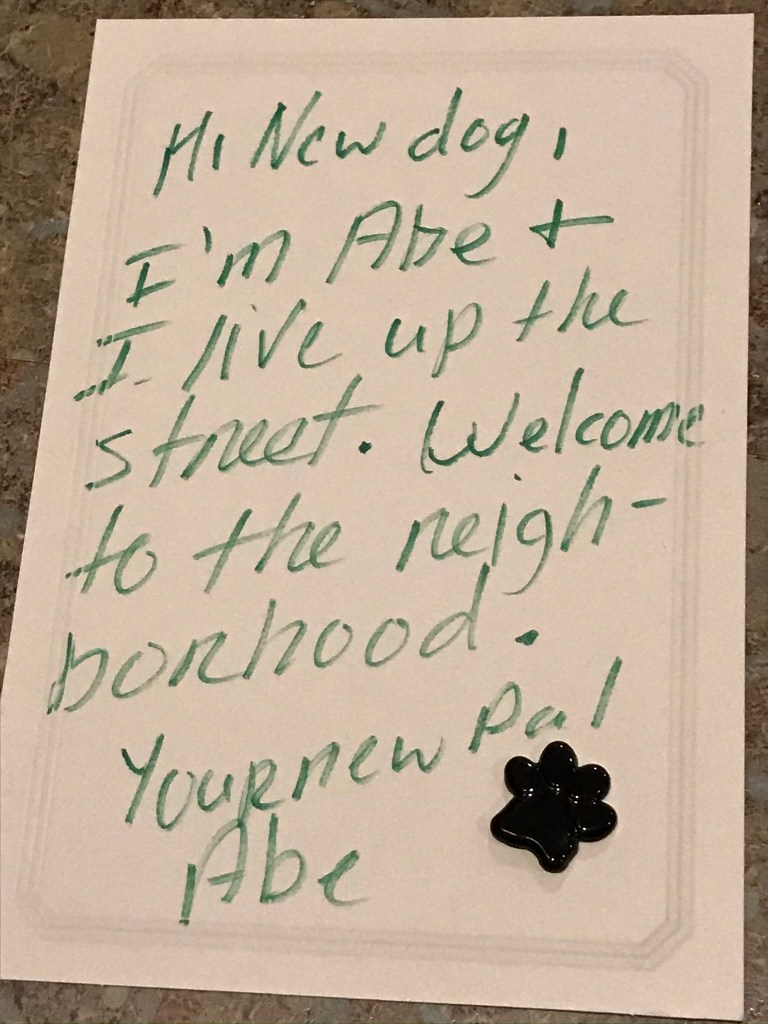 Hi New dog,
I'm Abe +
I live up the
street. Welcome
to the neigh-
borhood.
Your new Pal
Abe